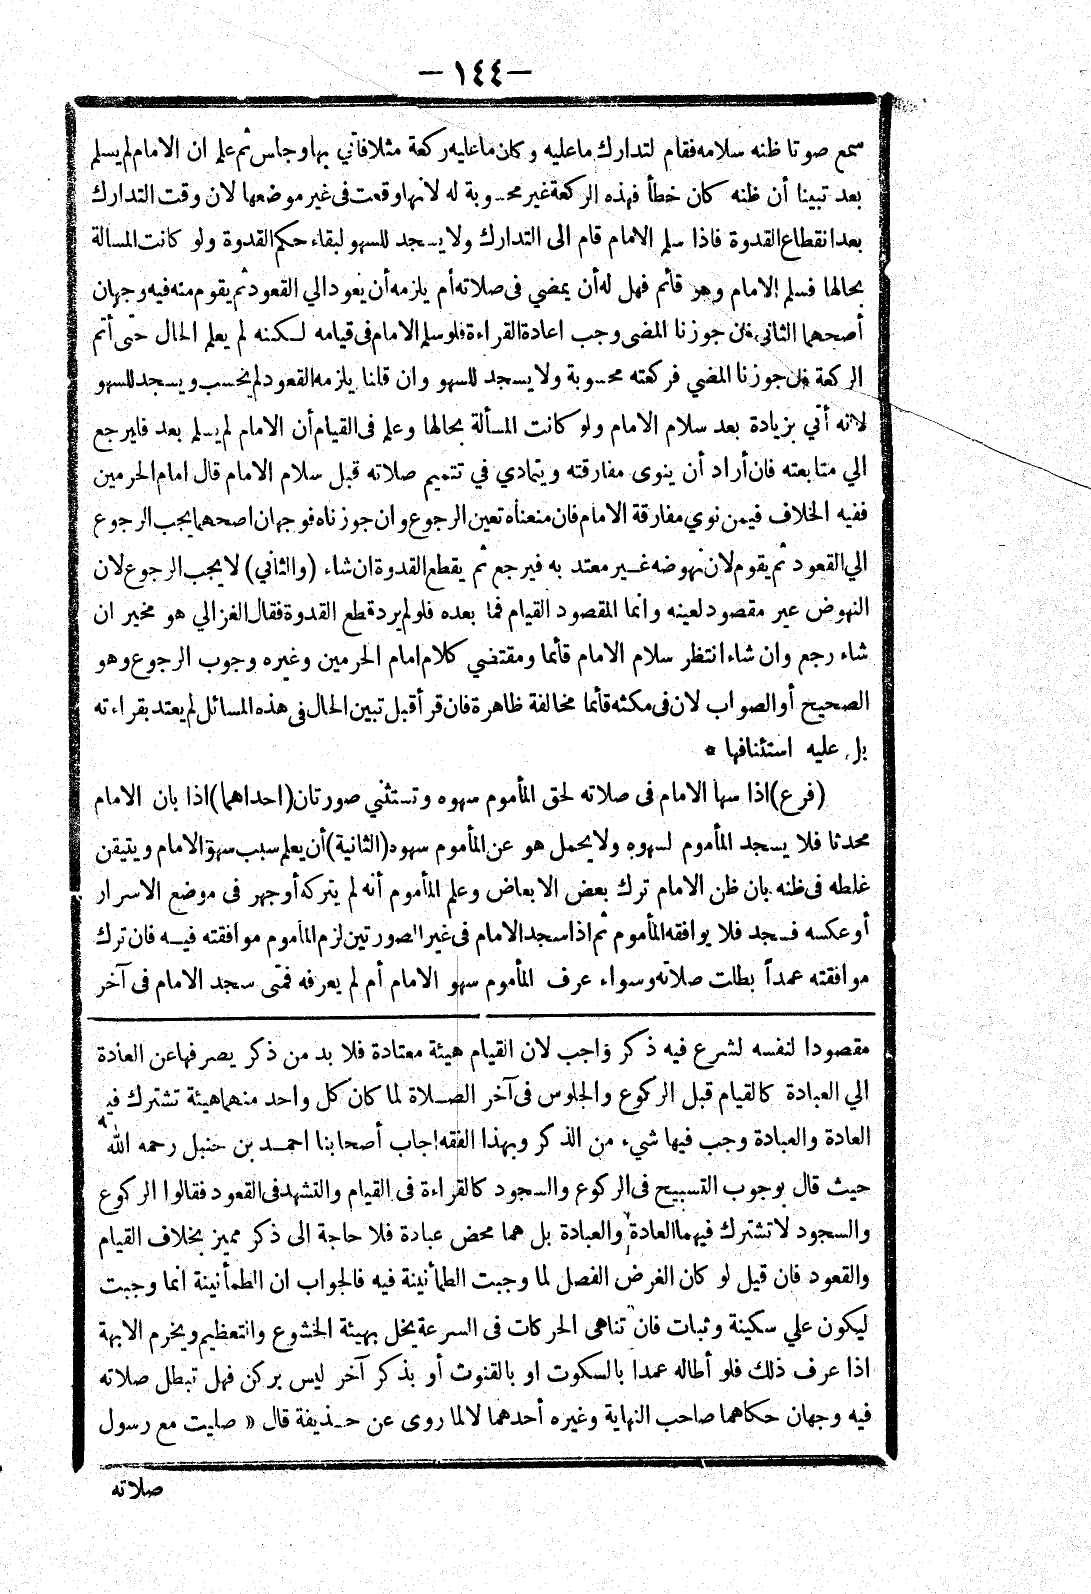 —١٤٤—
سمع صوتا ظنه سلامه فقام لتدارك ما عليه وكان ما عليه ركعة مثلا فاتي بها وجلس ثم علم ان الامام لم يسلم
بعد تبينا أن ظنه كان خطأ فهذه الركعة غير محسوبة له لانها وقعت في غير موضعها لان وقت التدارك
بعد انقطاع القدوة فاذا سلم الامام قام الى التدارك ولا يسجد للسهو لبقاء حكم القدوة ولو كانت المسالة
بحالها فسلم الامام وهو قائم فهل له أن يمضي فى صلاته أم يلزمه أن يعود الي القعود ثم يقوم منه فيه وجهان
أصحهما الثاني فان جوزنا المضى وجب اعادة القراءة فلو سلم الامام فى قيامه لكنه لم يعلم الحال حتى أتم
الركعة فان جوزنا المضي فركعته محسوبة ولا يسجد للسهو وان قلنا يلزمه القعود لم يحسب ويسجد للسهو
لانه أتي بزيادة بعد سلام الامام ولو كانت المسألة بحالها وعلم فى القيام أن الامام لم يسلم بعد فليرجع
الي متابعته فان أراد أن ينوى مفارقته ويتمادي في تتميم صلاته قبل سلام الامام قال امام الحرمين
ففيه الخلاف فيمن نوي مفارقة الامام فان منعناه تعين الرجوع وان جوزناه فوجهان اصحهما يجب الرجوع
الي القعود ثم يقوم لان نهوضه غير معتد به فيرجع ثم يقطع القدوة ان شاء (والثاني) لا يجب الرجوع لان
النهوض غير مقصود لعينه وانما المقصود القيام فما بعده فلو لم يرد قطع القدوة فقال الغزالي هو مخير ان
شاء رجع وان شاء انتظر سلام الامام قائما ومقتضي كلام امام الحرمين وغيره وجوب الرجوع وهو
الصحيح أو الصواب لان فى مكثه قائما مخالفة ظاهرة فان قرأ قبل تبين الحال فى هذه المسائل لم يعتد بقراءته
بل عليه استئنافها *
(فرع) اذا سها الامام فى صلاته لحق المأموم سهوه وتستثني صورتان (احداهما) اذا بان الامام
محدثا فلا يسجد المأموم لسهوه ولا يحمل هو عن المأموم سهوه (الثانية) أن يعلم سبب سهو الامام ويتيقن
غلطه فى ظنه بان ظن الامام ترك بعض الابعاض وعلم المأموم أنه لم يتركه أو جهر فى موضع الاسرار
أو عكسه فسجد فلا يوافقه المأموم ثم اذا سجد الامام فى غير الصورتين لزم المأموم موافقته فيه فان ترك
موافقته عمداً بطلت صلاته وسواء عرف المأموم سهو الامام أم لم يعرفه فمتى سجد الامام فى آخر
مقصودا لنفسه لشرع فيه ذكر واجب لان القيام هيئة معتادة فلا بد من ذكر يصرفها عن العادة
الي العبادة كالقيام قبل الركوع والجلوس فى آخر الصلاة لما كان كل واحد منهما هيئة تشترك فيه
العادة والعبادة وجب فيها شيء من الذكر وبهذا الفقه اجاب أصحابنا احمد بن حنبل رحمه الله
حيث قال بوجوب التسبيح فى الركوع والسجود كالقراءة فى القيام والتشهد فى القعود فقالوا الركوع
والسجود لا تشترك فيهما العادة والعبادة بل هما محض عبادة فلا حاجة الى ذكر مميز بخلاف القيام
والقعود فان قيل لو كان الغرض الفصل لما وجبت الطمأنينة فيه فالجواب ان الطمأنينة انما وجبت
ليكون علي سكينة وثبات فان تناهى الحركات فى السرعة يخل بهيئة الخشوع والتعظيم ويخرم الابهة
اذا عرف ذلك فلو أطاله عمدا بالسكوت او بالقنوت أو بذكر آخر ليس بركن فهل تبطل صلاته
فيه وجهان حكاهما صاحب النهاية وغيره أحدهما لا لما روى عن حذيفة قال « صليت مع رسول
صلاته